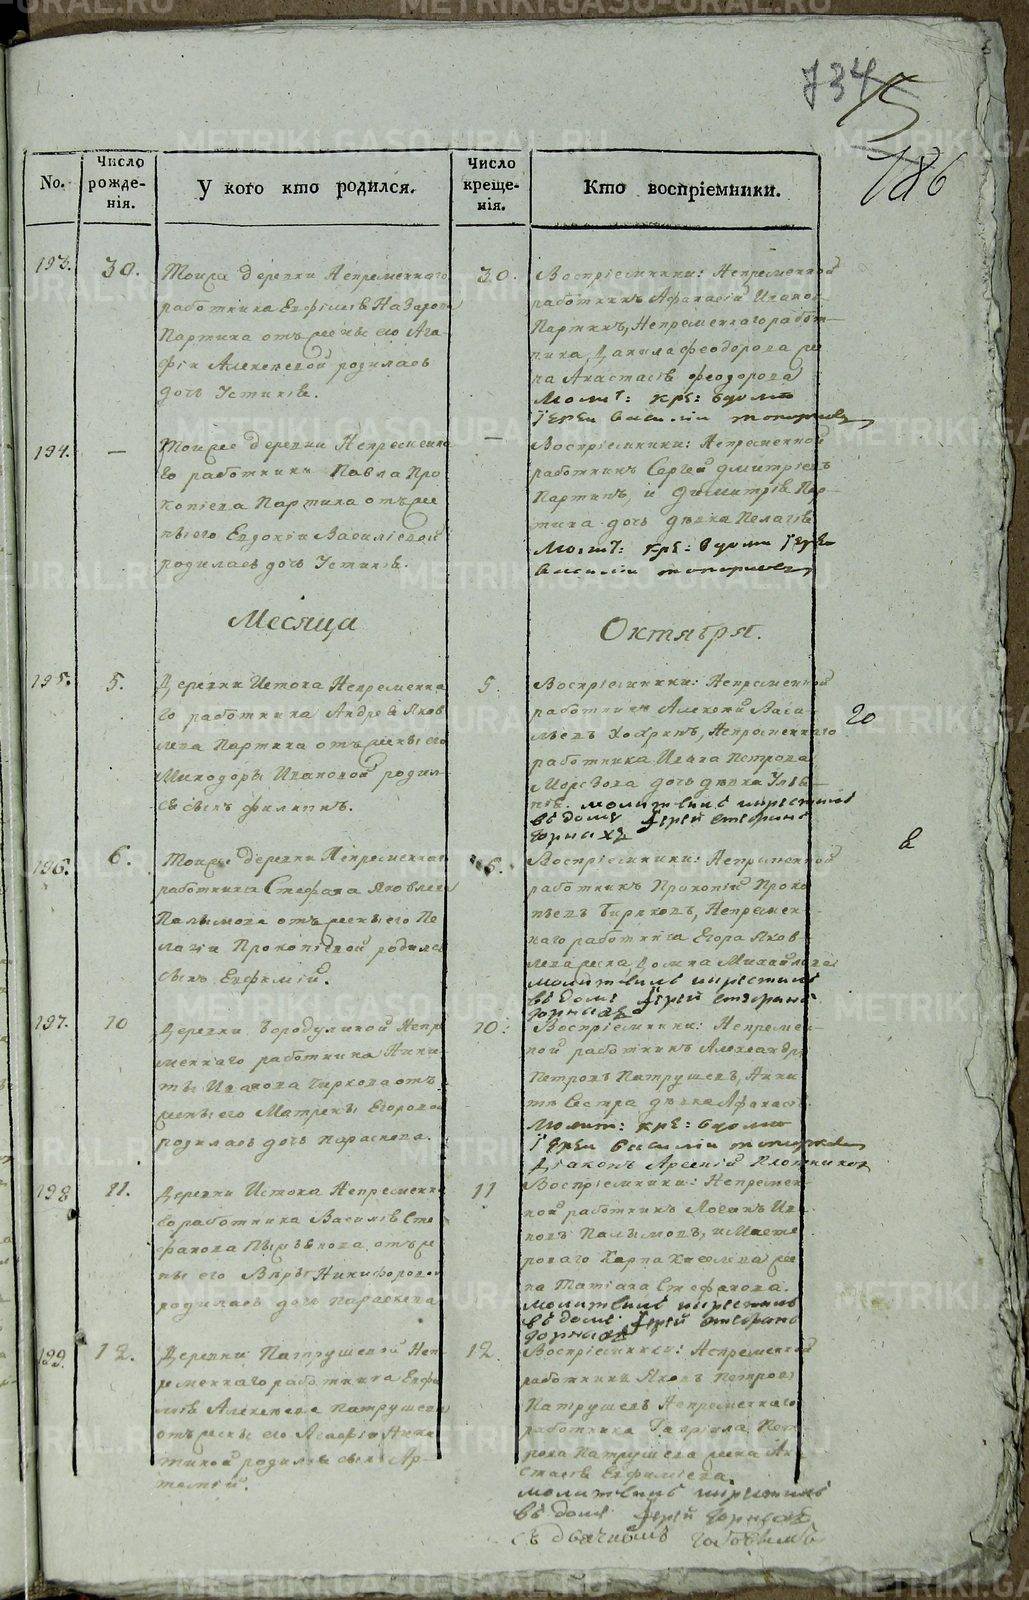 734
5
186
No.
Число рожде-нія.
У кого кто родился.
Число креще-нія.
Кто воспріемники.
193.
30.
Тоиже деревни Непременнаго
работника Евфимiя Назарова
Партина отъ жены его Ага-
фiи Алексѣевой родилась
дочь Устинiя.
30.
Воспрiемники: Непременной
работникъ Афанасiй Иванов
Партинъ, Непременнаго работ-
ника Данила Феодорова же-
на Анастасiя Феодорова
Молит: кре: в домѣ
Iерей Василiи Топорковъ
194.
—
Тоиже деревни Непременна
го работника Павла Про
копiева Партина отъ же
ны его Евдокiи Василiевой
родилась дочь Устинiя.
—
Воспрiемники: Непременной
работникъ Сергей Дмитрiевъ
Партинъ, и Димитрiя Пар-
тина дочь дѣвка Пелагiя
Молит: кре: в доми Iерей
Василiи Топорковъ
Месяца
Октября.
195.
5.
Деревни Истока Непременна
го работника Андрея Яков
лева Партина отъ жены его
Микодоры Ивановой родил-
ся сынъ Филиппъ.
5.
Воспрiемники: Непременной
работникъ Алексѣй Васи-
льевъ Хохринъ, Непременнаго
работника Ивана Петрова
Морозова дочь дѣвка Улья-
нiя. молитвилъ икрестилъ
въ домѣ Iерей Стефанъ
Черныхъ
20
196.
6.
Тоиже деревни Непременнаго
работника Стефана Яковлева
Палымова отъ жены его Пе
лагiи Прокопiевой родился
сынъ Евфимiй.
6.
Воспрiемники: Непременной
работникъ Прокопiй Проко
пьевъ Бирюковъ, Непремен-
наго работника Егора Яков-
лева жена Домна Михайлова
молитвилъ икрестилъ
въ домѣ Iерей Стефанъ
Черныхъ
в
197.
10
Деревни Бородулиной Непре
меннаго работника Ники-
ты Иванова Чиркова отъ
жены его Матрены Егоровой
родилась дочь Параскева.
10.
Воспрiемники: Непремен-
ной работникъ Александръ
Петровъ Патрушевъ, Ники
ты Сестра дѣвка Афанась
Молит: кре: в домѣ
Iерей Василiи Топорковъ
Дiаконъ Арсенiй Плотниковъ
198
11.
Деревни Истока Непременна
го работника Василiя Сте
фанова Пьянкова отъ же
ны его Вѣры Никифоровой
родилась дочь Параскева
11
Воспрiемники: Непремен-
ной работникъ Логинъ Ива
новъ Палымовъ, и Масте
роваго Карпа Киселева же
на Татiана Стефанова.
молитвилъ икрестилъ
въ домѣ Iерей Стефанъ
Черныхъ
199.
12.
Деревни Патрушевой Неп-
ременнаго работника Евфи-
мiя Алексѣева Патрушева
отъ жены его Агафiи Ники-
тиной родился сынъ Ар-
темiй.
12
Воспрiемники: Непременной
работникъ Яковъ Петровъ
Патрушевъ Непременнаго
работника Гаврiила Пет
рова Патрушева жена Ана
стасiя Евфимiева.
молитвилъ икрестилъ
въ домѣ Iерей Черныхъ
съ дьячкомъ